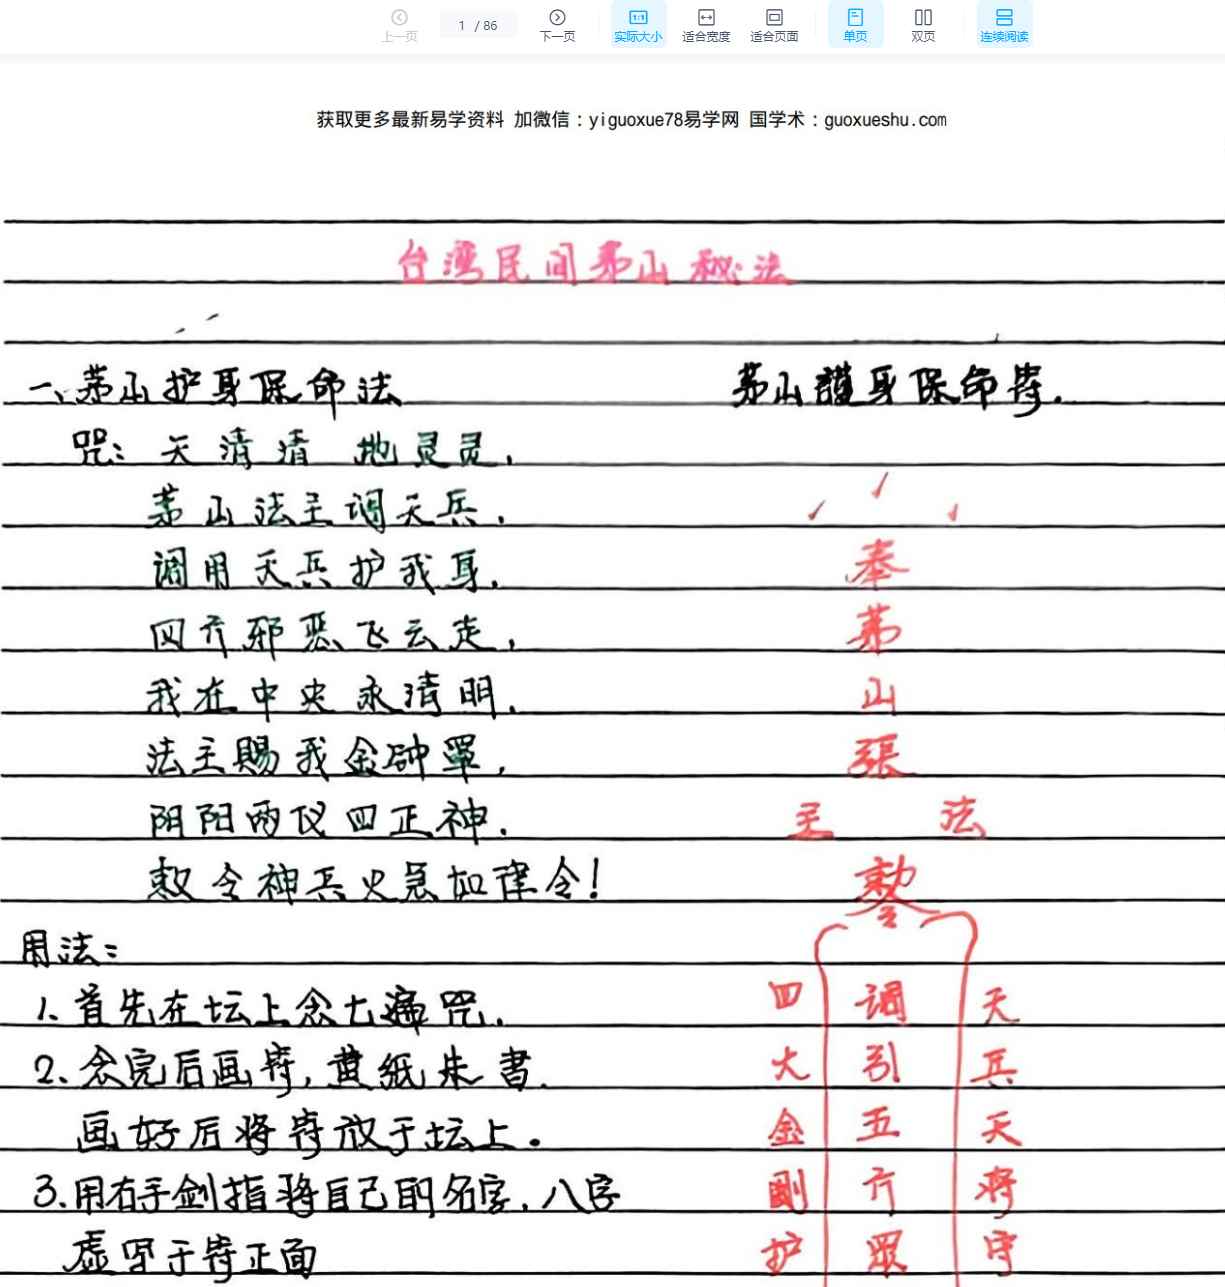 上一页 1 / 86 下一页 实际大小 适合宽度 适合页面 单页 双页 连续阅读
获取更多最新易学资料 加微信：yiguoxue78易学网 国学术：guoxueshu.com
台湾民间茅山秘法
一、茅山护身保命法
咒：天清清 地灵灵，
茅山法主调天兵，
调用天兵护我身，
四方邪恶飞云走，
我在中央永清明，
法主赐我金钟罩，
阴阳两仪四正神，
敕令神兵火急如律令！
用法：
1、首先在坛上念七遍咒，
2、念完后画符，黄纸朱书，
画好后将符放于坛上。
3、用右手剑指将自己的名字，八字
虚写于符正面
茅山護身保命符.
奉
茅
山
張
主 法
勅令
四 调 天
大 引 兵
金 五 天
剛 方 将
护 眾 守